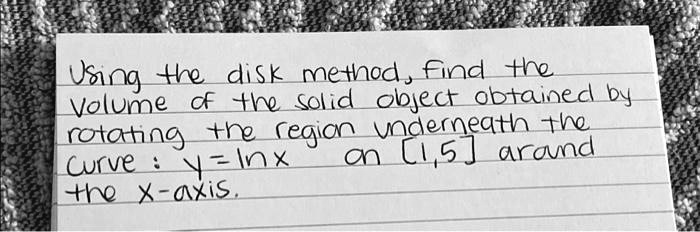 Using the disk method, find the
volume of the solid object obtained by
rotating the region underneath the
curve : y = ln x on [1,5] around
the x-axis.